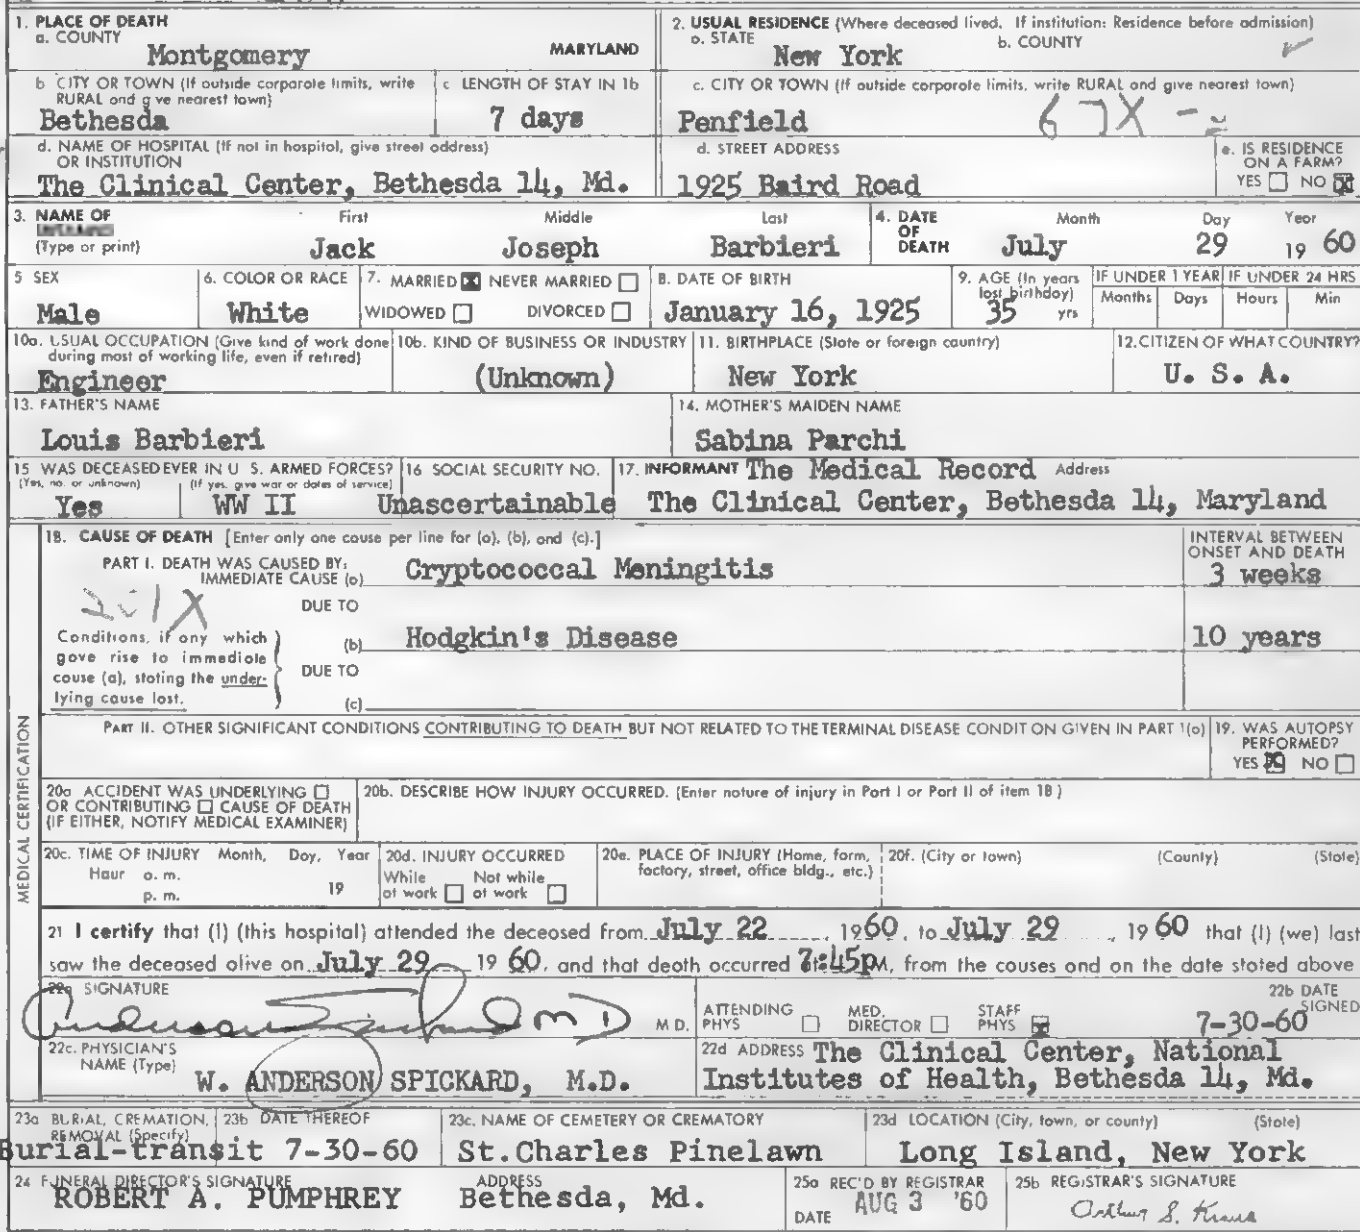 1. PLACE OF DEATH
a. COUNTY
Montgomery MARYLAND
2. USUAL RESIDENCE (Where deceased lived. If institution: Residence before admission)
a. STATE b. COUNTY
New York
b CITY OR TOWN (If outside corporate limits, write
RURAL and give nearest town)
Bethesda
c LENGTH OF STAY IN 1b
7 days
c. CITY OR TOWN (If outside corporate limits, write RURAL and give nearest town)
Penfield
67X -
d. NAME OF HOSPITAL (If not in hospital, give street address)
OR INSTITUTION
The Clinical Center, Bethesda 14, Md.
d. STREET ADDRESS
1925 Baird Road
e. IS RESIDENCE
ON A FARM?
YES NO
3. NAME OF
(Type or print)
First Middle Last
Jack Joseph Barbieri
4. DATE
OF
DEATH
Month Day Year
July 29 19 60
5 SEX
Male
6. COLOR OR RACE
White
7. MARRIED NEVER MARRIED
WIDOWED DIVORCED
8. DATE OF BIRTH
January 16, 1925
9. AGE (In years
last birthday)
35 yrs
IF UNDER 1 YEAR IF UNDER 24 HRS
Months Days Hours Min
10a. USUAL OCCUPATION (Give kind of work done
during most of working life, even if retired)
Engineer
10b. KIND OF BUSINESS OR INDUSTRY
(Unknown)
11. BIRTHPLACE (State or foreign country)
New York
12. CITIZEN OF WHAT COUNTRY?
U. S. A.
13. FATHER'S NAME
Louis Barbieri
14. MOTHER'S MAIDEN NAME
Sabina Parchi
15 WAS DECEASED EVER IN U S. ARMED FORCES?
(Yes, no. or unknown) (If yes, give war or dates of service)
Yes WW II
16 SOCIAL SECURITY NO.
Unascertainable
17. INFORMANT The Medical Record Address
The Clinical Center, Bethesda 14, Maryland
18. CAUSE OF DEATH [Enter only one cause per line for (a), (b), and (c).]
INTERVAL BETWEEN
ONSET AND DEATH
PART I. DEATH WAS CAUSED BY:
IMMEDIATE CAUSE (a) Cryptococcal Meningitis 3 weeks
201X
DUE TO
Conditions, if any which
gave rise to immediate
cause (a), stating the under-
lying cause last.
(b) Hodgkin's Disease 10 years
DUE TO
(c)
PART II. OTHER SIGNIFICANT CONDITIONS CONTRIBUTING TO DEATH BUT NOT RELATED TO THE TERMINAL DISEASE CONDITION GIVEN IN PART 1(a)
19. WAS AUTOPSY
PERFORMED?
YES NO
MEDICAL CERTIFICATION
20a ACCIDENT WAS UNDERLYING
OR CONTRIBUTING CAUSE OF DEATH
(IF EITHER, NOTIFY MEDICAL EXAMINER)
20b. DESCRIBE HOW INJURY OCCURRED. (Enter nature of injury in Part I or Part II of item 18)
20c. TIME OF INJURY Month, Day, Year
Hour a. m.
p. m. 19
20d. INJURY OCCURRED
While Not while
at work at work
20e. PLACE OF INJURY (Home, farm,
factory, street, office bldg., etc.)
20f. (City or town) (County) (State)
21 I certify that (I) (this hospital) attended the deceased from July 22, 1960, to July 29, 19 60 that (I) (we) last
saw the deceased alive on July 29 19 60, and that death occurred 7:45pM, from the causes and on the date stated above
22a SIGNATURE
Anderson Spickard MD M D.
ATTENDING
PHYS
MED.
DIRECTOR
STAFF
PHYS
22b DATE
SIGNED
7-30-60
22c. PHYSICIAN'S
NAME (Type)
W. ANDERSON SPICKARD, M.D.
22d ADDRESS The Clinical Center, National
Institutes of Health, Bethesda 14, Md.
23a BURIAL, CREMATION,
REMOVAL (Specify)
Burial-transit
23b DATE THEREOF
7-30-60
23c. NAME OF CEMETERY OR CREMATORY
St.Charles Pinelawn
23d LOCATION (City, town, or county) (State)
Long Island, New York
24 FUNERAL DIRECTOR'S SIGNATURE
ROBERT A. PUMPHREY
ADDRESS
Bethesda, Md.
25a REC'D BY REGISTRAR
DATE AUG 3 '60
25b REGISTRAR'S SIGNATURE
Arthur S. Kraus